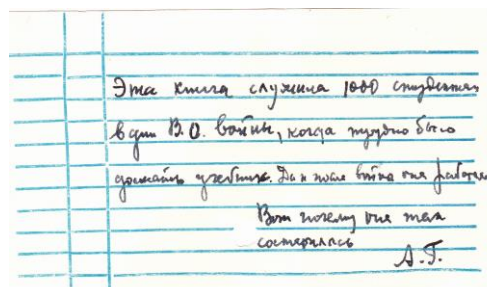 Эта книга служила 1000 студентам
в дни В.О. войны, когда трудно было
достать учебник. Да и после войны она работала
Вот почему она так
состарилась
А.Г.